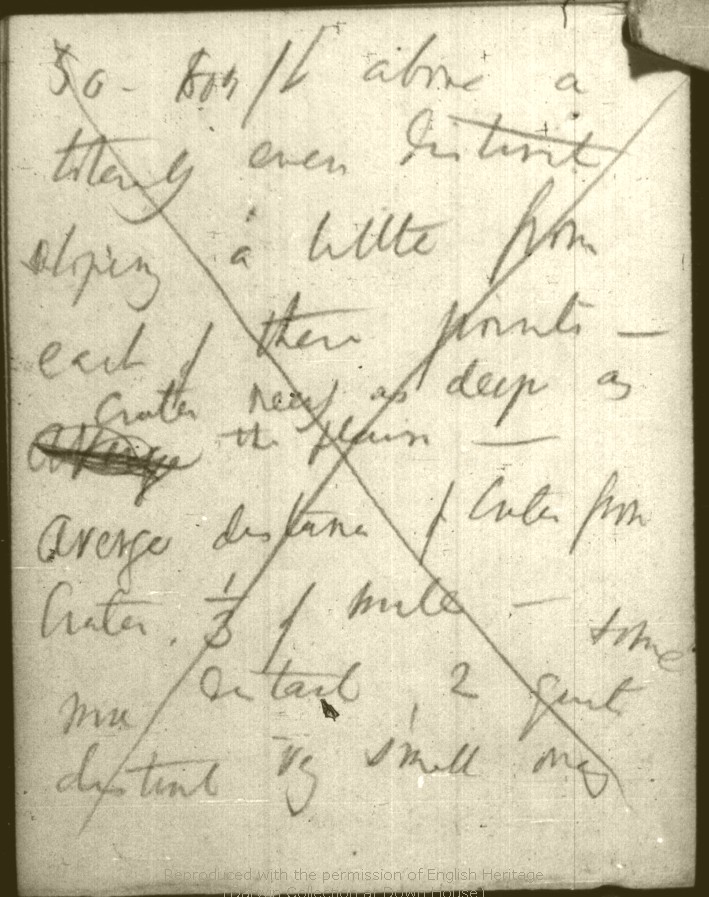 50 - 60 ft above a
totally even district
sloping a little from
each of these points —
crater nearly as deep as
average the plain —
averge distance of Crater from
Crater. 1/3 of mile — some
more distant, 2 quite
distinct vy small ones
Reproduced with the permission of English Heritage
(Darwin Collection at Down House)